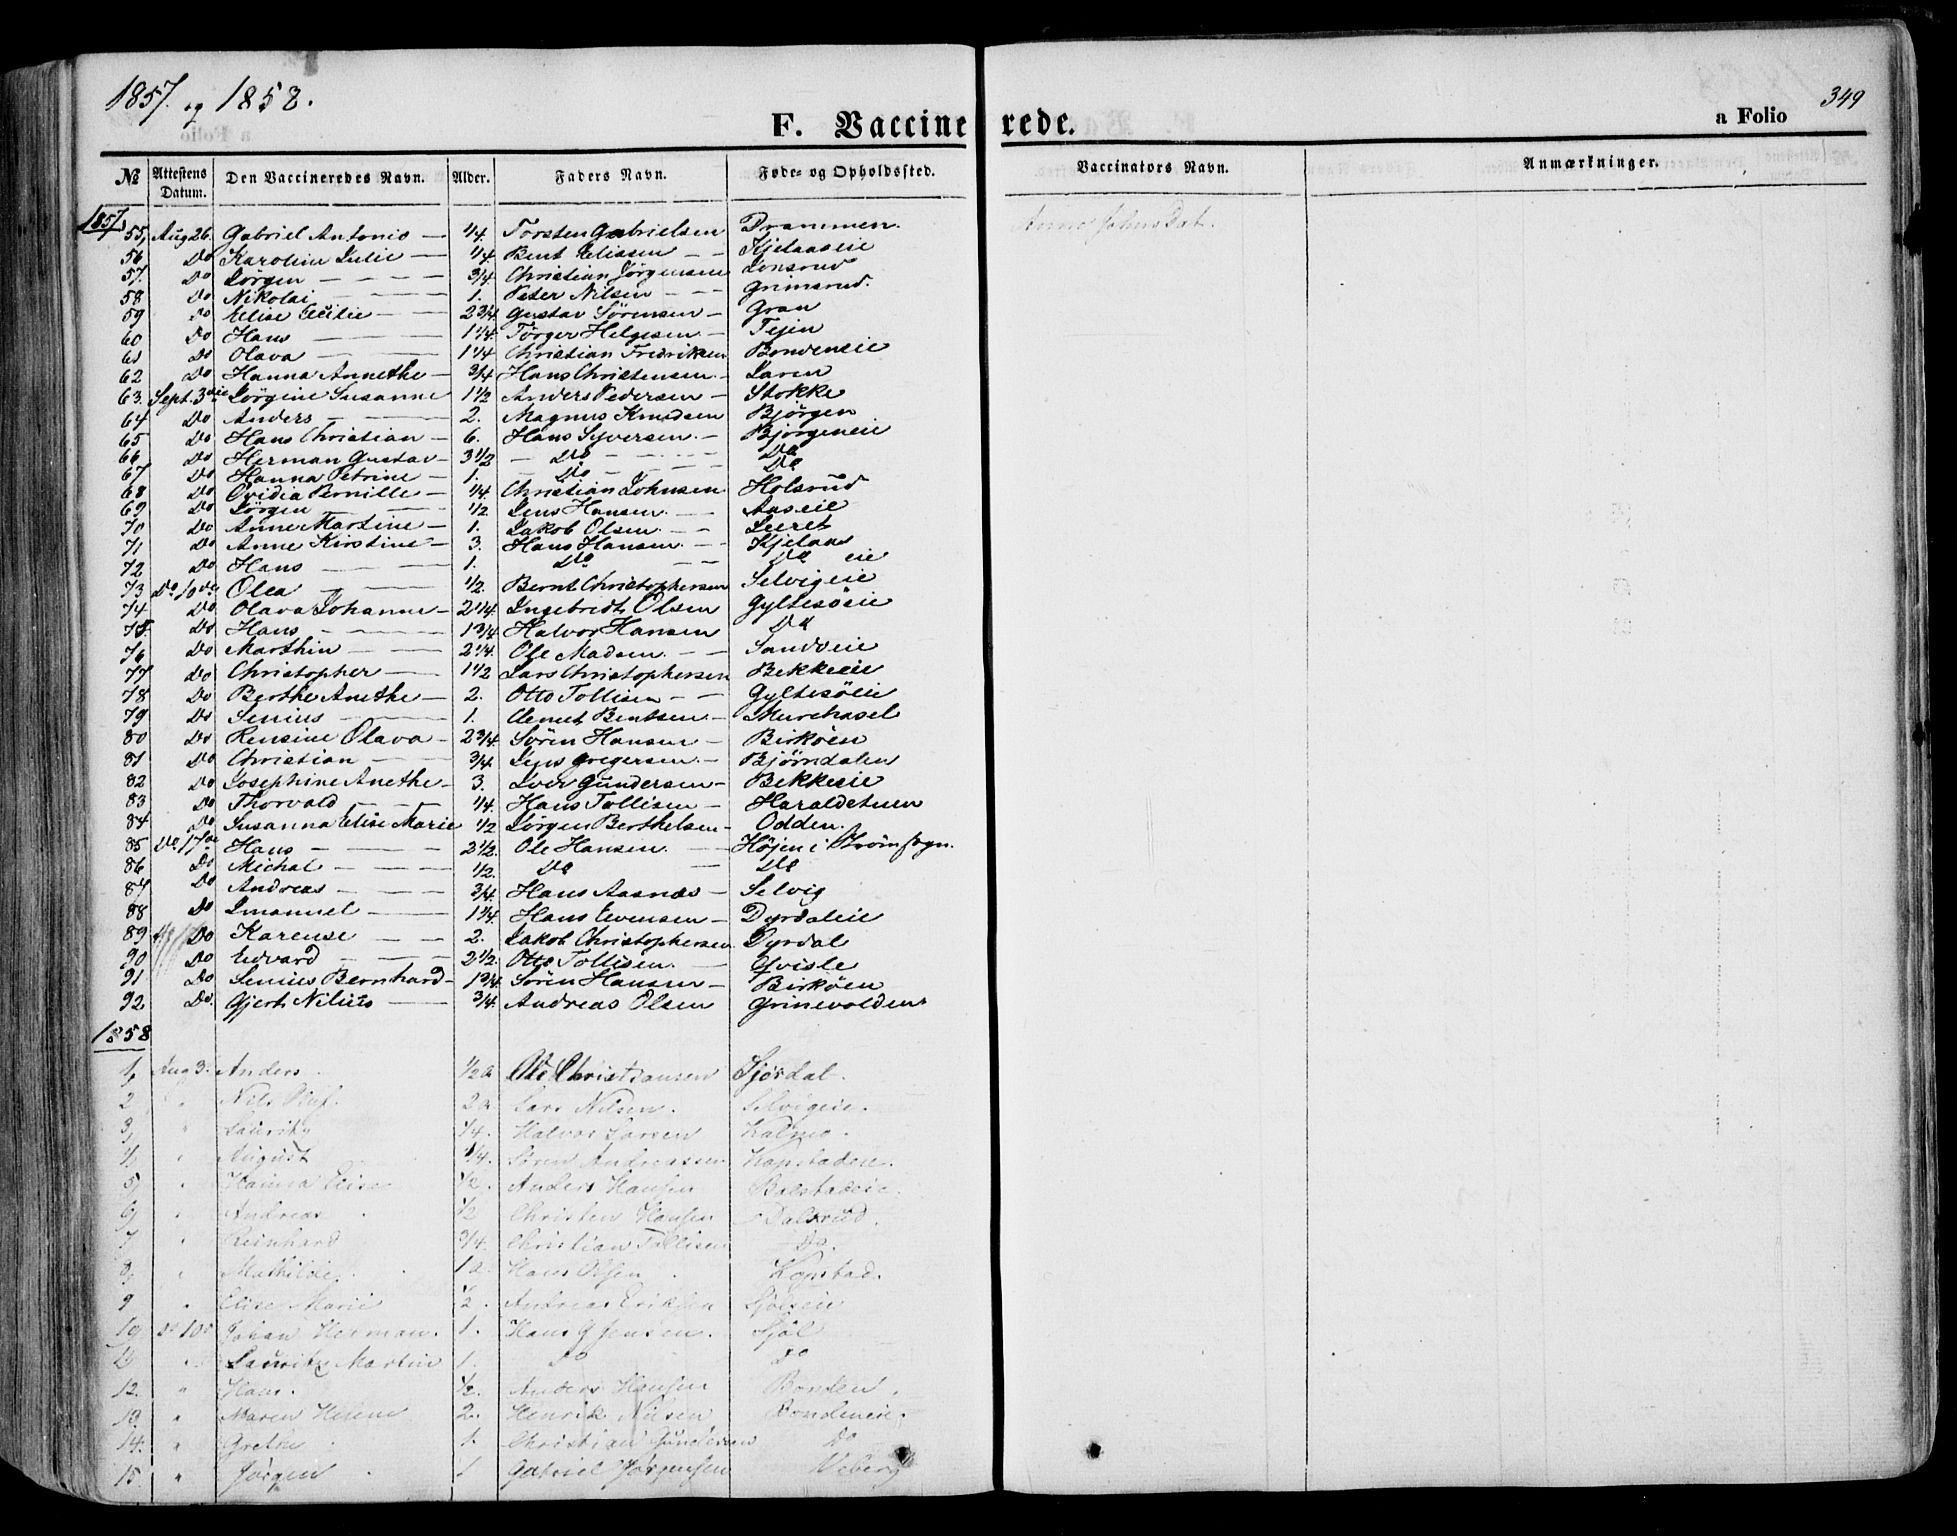 1857. og 1858.
349
F. Vaccinerede.
a Folio
№ Attestens Datum. Den Vaccineredes Navn. Alder. Faders Navn. Føde- og Opholdssted. Vaccinators Navn. Anmærkninger.
1857,
55, Aug 26. Gabriel Antonio — 1/4. Torsten Gabrielsen Drammen. Anne Johns Dat.
56 Do Karoline Julie — 1/4. Bent Elissen — — Kjelaaseie
57. Do Jörgen — — — 3/4 Christian Jörgensen Lonsrud
58 Do Nikolai — — — 1. Peter Nilsen — — Grimsrud.
59 Do Elise — — 2 3/4 Gustav Sörensen — Gran
60 Do Hans — — — 1 1/4. Törger Helgesen — Tejin
61 Do Olava — — — 1 1/4 Christian Fredriksen Bondeneie
62 Do Hanna Annethe — 3/4 Hans Christensen — Laren
63. Sept. 3die Jörgine Susanne 1 1/2 Anders Pedersen — Stokke
64 Do Anders — — — 2. Magnus Knudsen Bjørgen
65 Do Hans Christian — 6. Hans Syversen. — Bjørgeneie
66 Do Herman Gustav — 3 1/2 — Do — — Do
67 Do Hanna Petrine — 1. — Do — — Do
68 Do Ovidia Pernille — 1/4. Christian Johnsen Holsrud
69 Do Jörgen — — 1/2 Jens Hansen. — Aaseie
70 Do Anne Martine — 1. Jakob Olsen — — Leeret
71 Do Anne Kirstine — 3. Hans Hansen. — — Kjelaas
72 Do Hans — — — 1. Do — — Do eie
73 Do 10de Olea — — — 1/2. Bernt Christophersen Selvigeie
74 Do Olava Johanne — 2 1/4. Ingebredt Olsen Gyltesöeie
75. Do Hans — — — 1 3/4 Halvor Hansen Do
76 Do Marthin — — — 2 1/4. Ole Madsen. — — Sandveie
77 do Christopher — — 1 1/2 Lars Christophersen Bekkeeie
78 Do Berthe Anethe — 2. Otto Tollisen — — Gyltesöeie
79 Do Senius — — — 1. Clemet Bentsen. — Murehasel
80 Do Rensine Olava — 2 3/4. Sören Hansen — Birköen
81 Do Christian — — 3/4 Jens Gregersen. — Bjørndalen
82 Do Josephine Anethe — 3. Iver Gundersen — Bekkeeie
83 Do Thorvald — — — 1/4. Hans Tollisen — Haraldstuen
84 Do Susanna Elise Marie 1/2 Jörgen Berthelsen — Odden.
85 Do 17de Hans — — — 2 1/2. Ole Hansen. — — Höjen i Strömsogn.
86 Do Michal — — — 1/2. Do — Do
87 Do Andreas — — — 3/4. Hans Aasnæs — Selvig
88 Do Imanuel — — — 1 1/4. Hans Evensen — Dyrdaleie
89 Do Karense — — 2. Jakob Christophersen Dyrdal
90 Do Edvard — — — 2 1/2. Otto Tollisen. — Qvisle
91 Do Senius Bernhard — 1 3/4. Sören Hansen — Birköen
92. Do. Gjerh Nilius — — 3/4. Andreas Olsen Grinevolden
1858
1, Aug 3. Anders. 1/2 a Ole Christiansen Sjördal.
2 " Nils Oluf. 2 a Lars Nilsen. Selvigeie.
3, " Lauritz 1/4. Halvor Larsen Kalmo.
4, " August 1/4. Sören Andreassen Kopstadeie.
5, " Hanna Elise 1/2. Anders Hansen Bolstadeie.
6, " Andreas 1/2 Christen Hansen Dalsrud.
7 " Reinhard 3/4. Christian Tollisen Do.
8, " Mathilde. 1 a. Hans Olsen. Kopstad.
9 " Elise Marie 1/2. Andreas Eriksen Sjöleie
10 Do 10d Johan Herman. 1. Hans G Jensen. Sjöl
11 " Lauritz Martin 1. Do Do
12. " Hans. 1/2. Anders Hansen Bonden.
13. " Maren Helene 2. Henrik Nilsen Bondeneie.
14. " Grethe 1. Christian Gundersen Do
15. " Jörgen 1 Gabriel Jörgensen Weberg